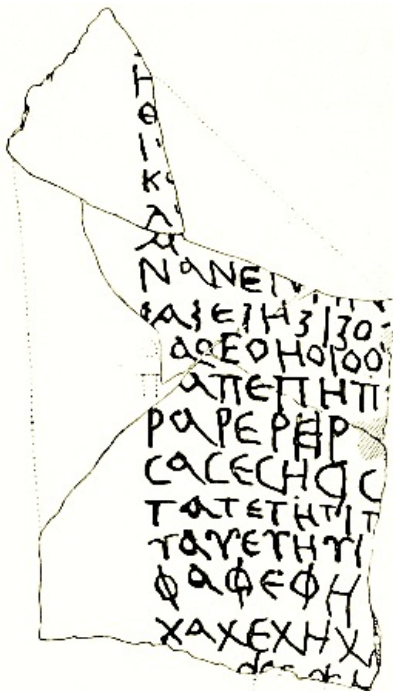 Η
Θ
Ι
Κ
Λ
Μ
ΝΑΝΕ
ΞΑΞΕΞΗΞΙΞΟ
ΑΟΕΟΗΟΙΟΟ
ΑΠΕΠΗΠ
ΡΑΡΕΡΗΡ
ϹΑϹΕϹΗϹΙϹ
ΤΑΤΕΤΗΤΙΤ
ΥΑΥΕΥΗΥΙ
ΦΑΦΕΦΗ
ΧΑΧΕΧΗΧ